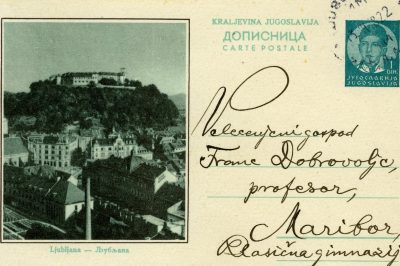 KRALJEVINA JUGOSLAVIJA
ДОПИСНИЦА
CARTE POSTALE
1
DIN.
ЈУГОСЛАВИЈА
JUGOSLAVIJA
Velecenjeni gospod
Franc Dobrovoljc,
profesor,
Maribor,
Klasična gimnazij
Ljubljana — Љубљана